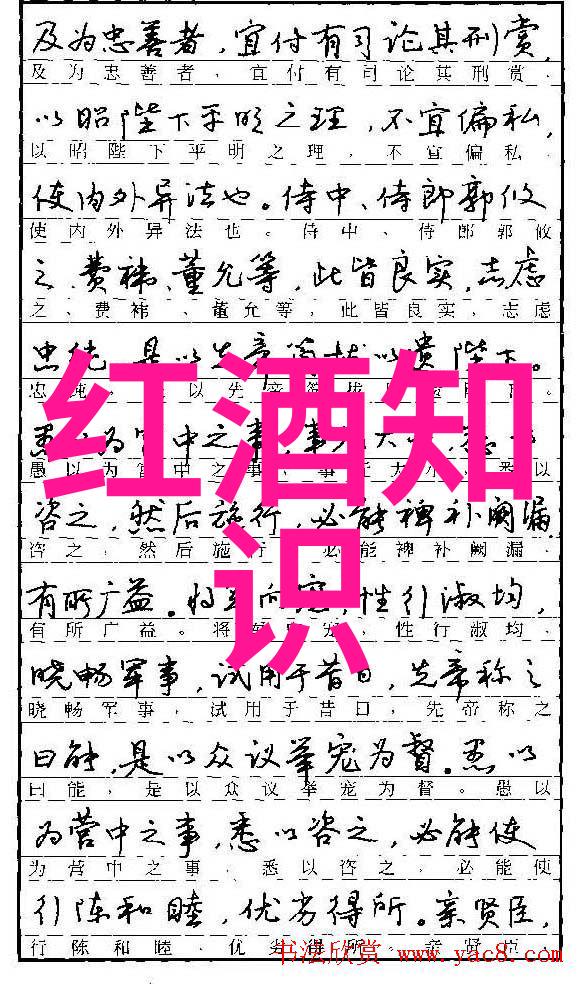 及为忠善者，宜付有司论其刑赏，
及为忠善者、宜付有司论其刑赏、
以昭陛下平明之理，不宜偏私，
以昭陛下平明之理、不宜偏私、
使内外异法也。侍中、侍郎郭攸
使内外异法也。侍中、侍郎郭攸
之、费祎、董允等，此皆良实，志虑
之、费祎、董允等，此皆良实，志虑
忠纯，是以先帝以遗陛下。
忠纯、是以先帝
红酒知识
愚为宫中之事，事大
愚以为宫中之事、事大小、悉以
咨之，然后施行，必能裨补阙漏
咨之、然后施行、必能裨补阙漏、
有所广益。将军向宠，性行淑均，
有所广益。将宠，性行淑均、
晓畅军事，试用于昔日，先帝称之
晓畅军事，试用于昔日，先帝称之
曰能，是以众议举宠为督。愚以
曰能，是以众议举宠为督。愚以
为营中之事，悉以咨之，必能使
为营中之事、悉以咨之、必能使
行陈和睦，优劣得所。亲贤臣，
行陈和睦、优劣得所、亲贤臣、
书法欣赏 www.yac8.com